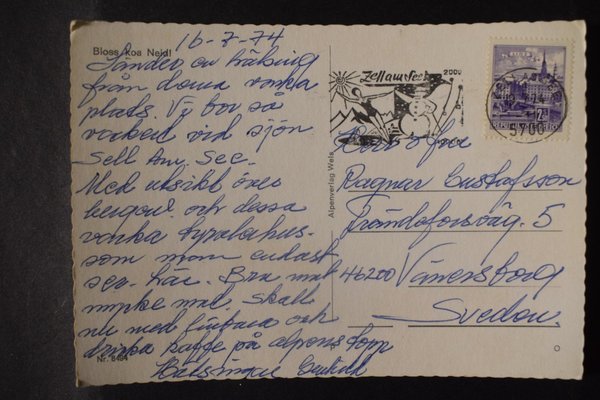 16-7-74
Bloss koa Neid!
Sänder en hälsing
från denna vackra
plats. Vi bor så
vackert vid sjön
Sell Am. See.
Med utsikt över
bergen och dessa
vackra tyrolerhus
som man endast
ser här. Bra mat
mycke mat. Skall
nu med linbana och
dricka kaffe på alpens topp
Hälsningar
Nr. 8494
Alpenverlag Wels
Zell am See
2000
5700
Herr o fru
Ragnar Gustafsson
Trändeforsväg. 5
46200 Vänersborg
Svedon.